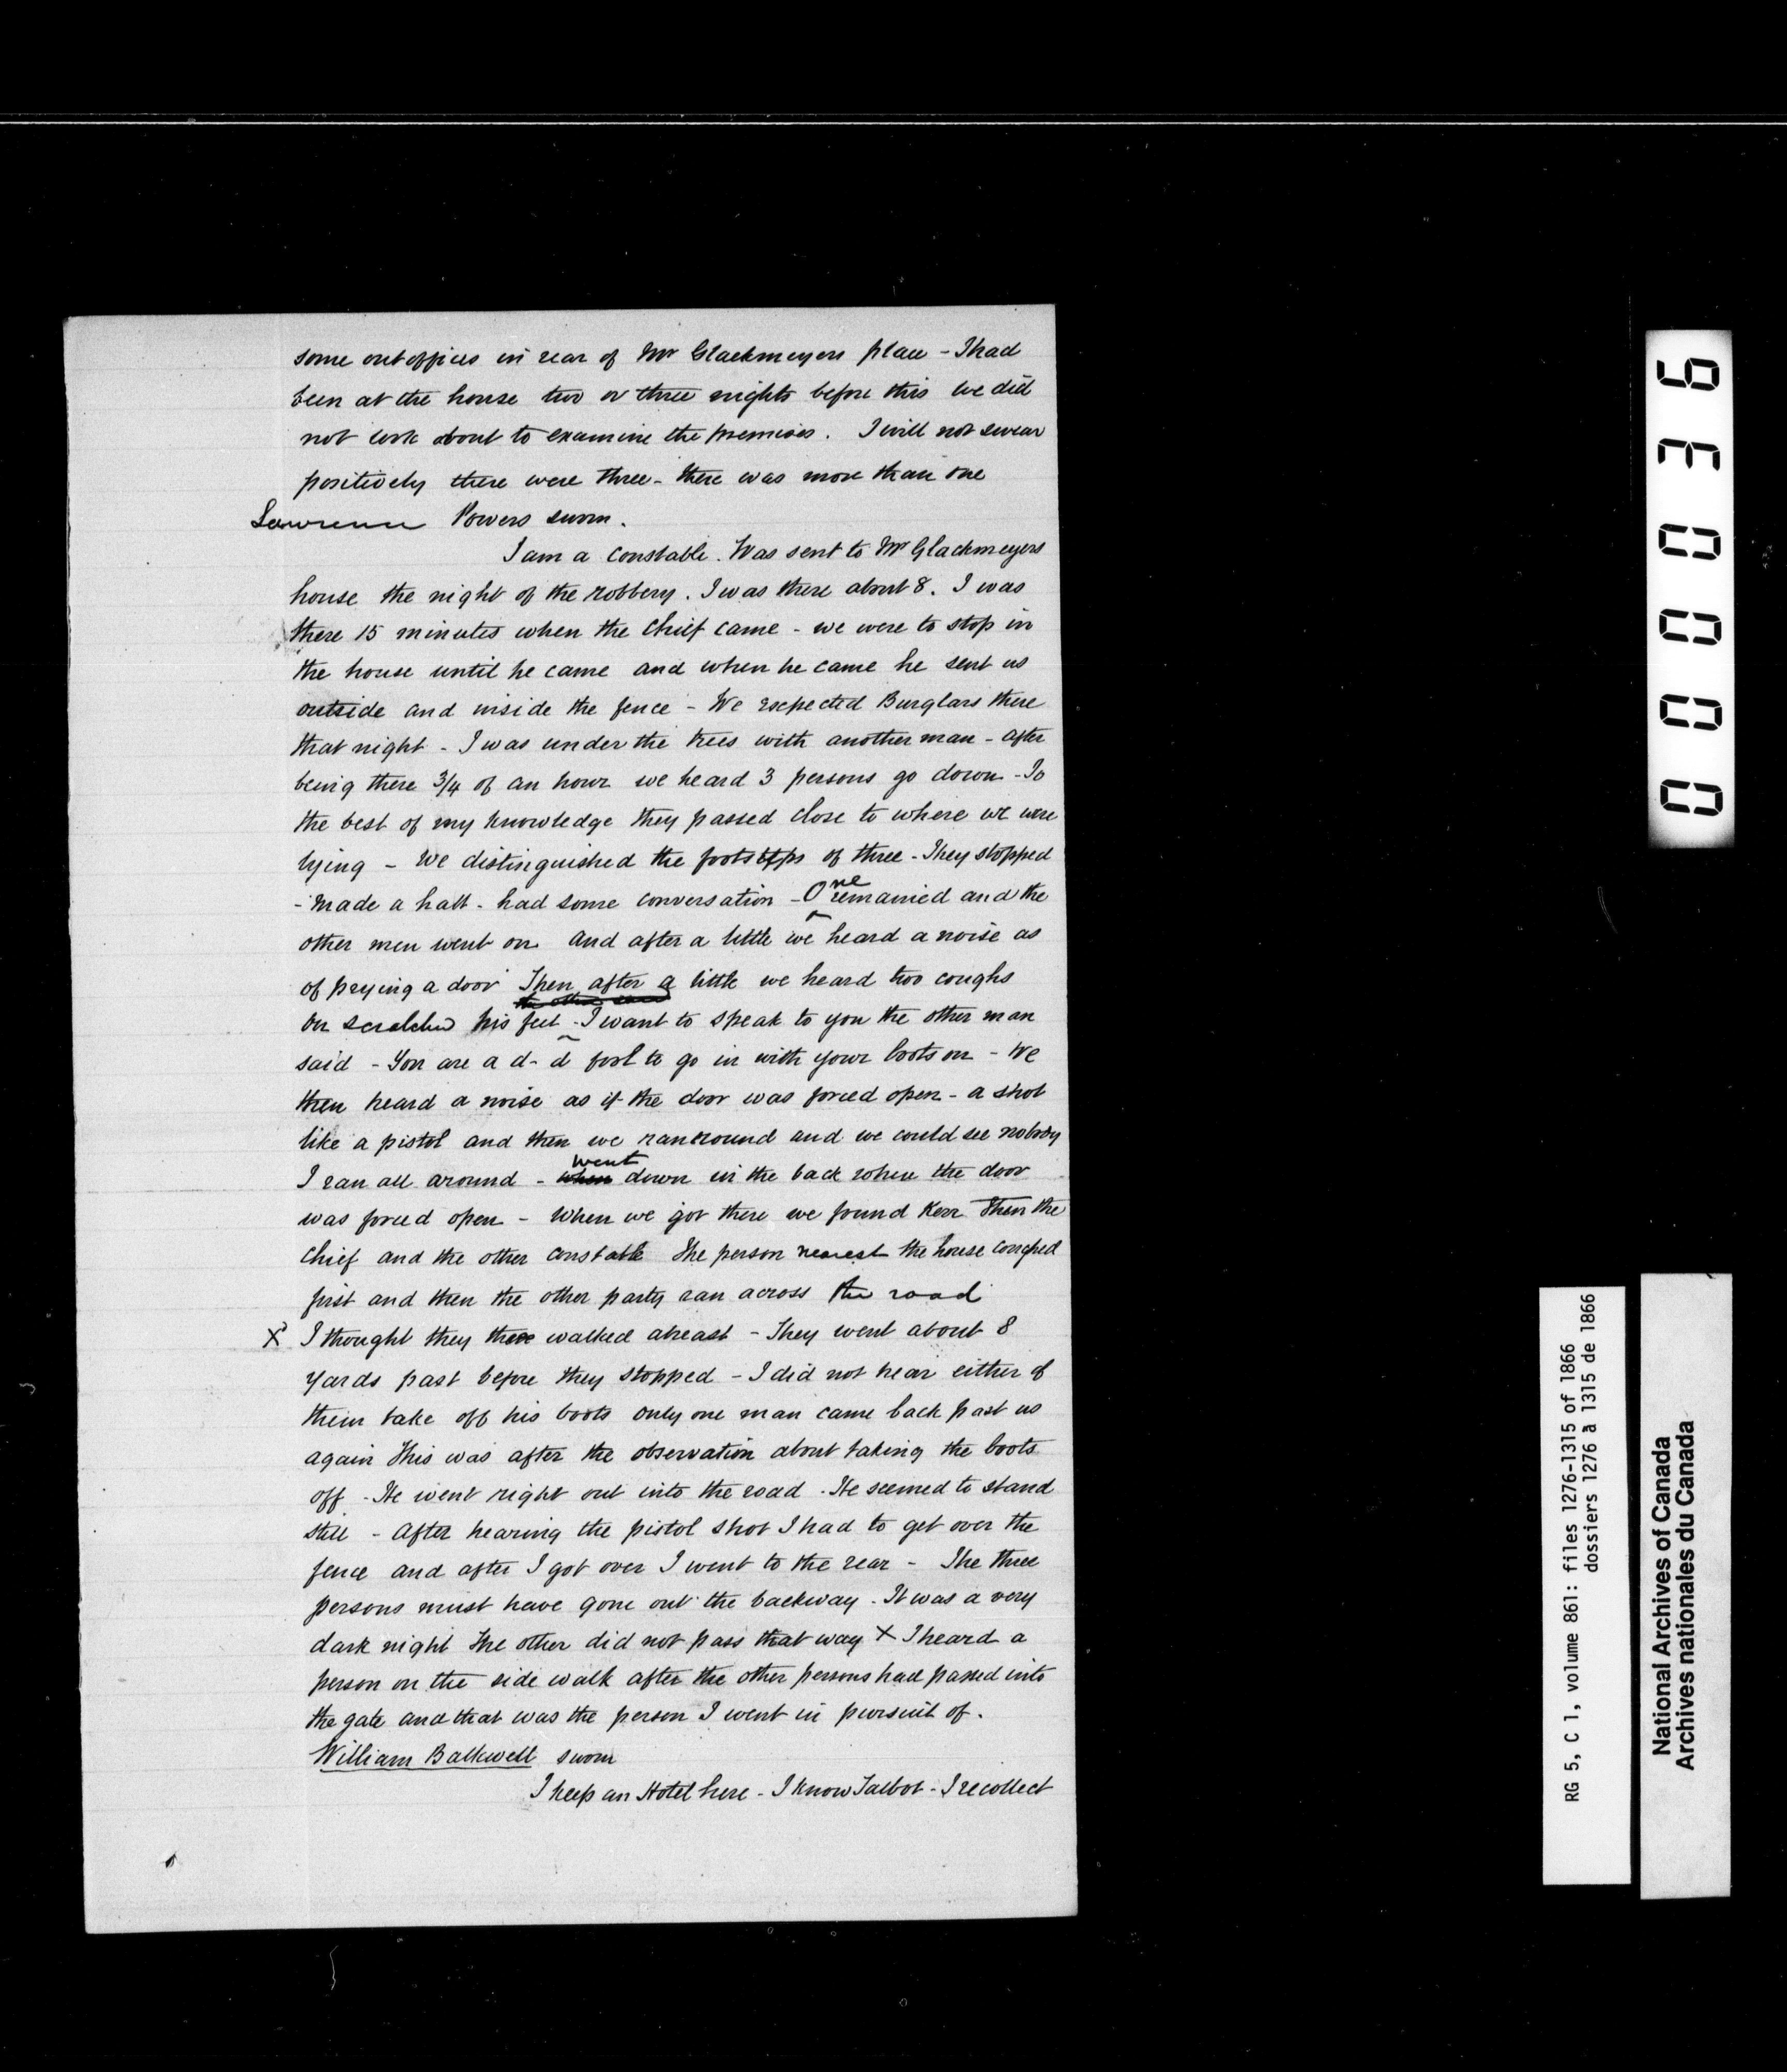 some outoffices in rear of Mr Glackmeyers place - I had
been at the house two or three nights before this we did
not look about to examine the premises. I will not swear
positively there were three - there was more than one
Lawrence Powers sworn.
I am a constable. Was sent to Mr Glackmeyers
house the night of the robbery. I was there about 8. I was
there 15 minutes when the Chief came - we were to stop in
the house until he came and when he came he sent us
outside and inside the fence - We expected Burglars there
that night - I was under the trees with another man - after
being there 3/4 of an hour we heard 3 persons go down - To
the best of my knowledge they passed close to where we were
lying - We distinguished the footsteps of three - They stopped
- made a halt - had some conversation - One remained and the
other men went on and after a little we heard a noise as
of prying a door Then after a little we heard two coughs
or scratched his feet - I want to speak to you the other man
said - You are a d-d fool to go in with your boots on - We
then heard a noise as if the door was forced open - a shot
like a pistol and then we ran round and we could see nobody
I ran all around - when went down in the back where the door
was forced open - When we got there we found Kerr then the
Chief and the other constable The person nearest the house coughed
first and then the other party ran across the road
X I thought they three walked abreast - They went about 8
yards past before they stopped - I did not hear either of
them take off his boots only one man came back past us
again This was after the observation about taking the boots
off - He went right out into the road - He seemed to stand
still - After hearing the pistol shot I had to get over the
fence and after I got over I went to the rear - The three
persons must have gone out the backway - It was a very
dark night The other did not pass that way X I heard a
person on the side walk after the other persons had passed into
the gate and that was the person I went in pursuit of.
William Balkwell sworn
I keep an Hotel here - I know Talbot - I recollect
000036
RG 5, C 1, volume 861: files 1276-1315 of 1866
dossiers 1276 à 1315 de 1866
National Archives of Canada
Archives nationales du Canada